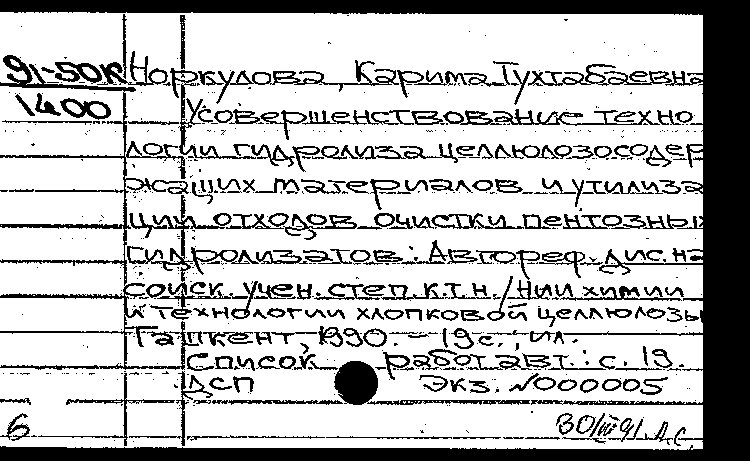 91-50К Норкулова, Карима Тухтабаевна
1400 Усовершенствование техно
логии гидролиза целлюлозосодер
жащих материалов и утилиза
ции отходов очистки пентозных
гидролизатов: Автореф. дис. на
соиск. учен. степ. к.т.н./НИИ химии
и технологии хлопковой целлюлозы
Ташкент, 1990. - 19с.; ил.
Список работ авт.: с. 19.
ДСП Экз. N000005
6 30/VII 91. Д.С.